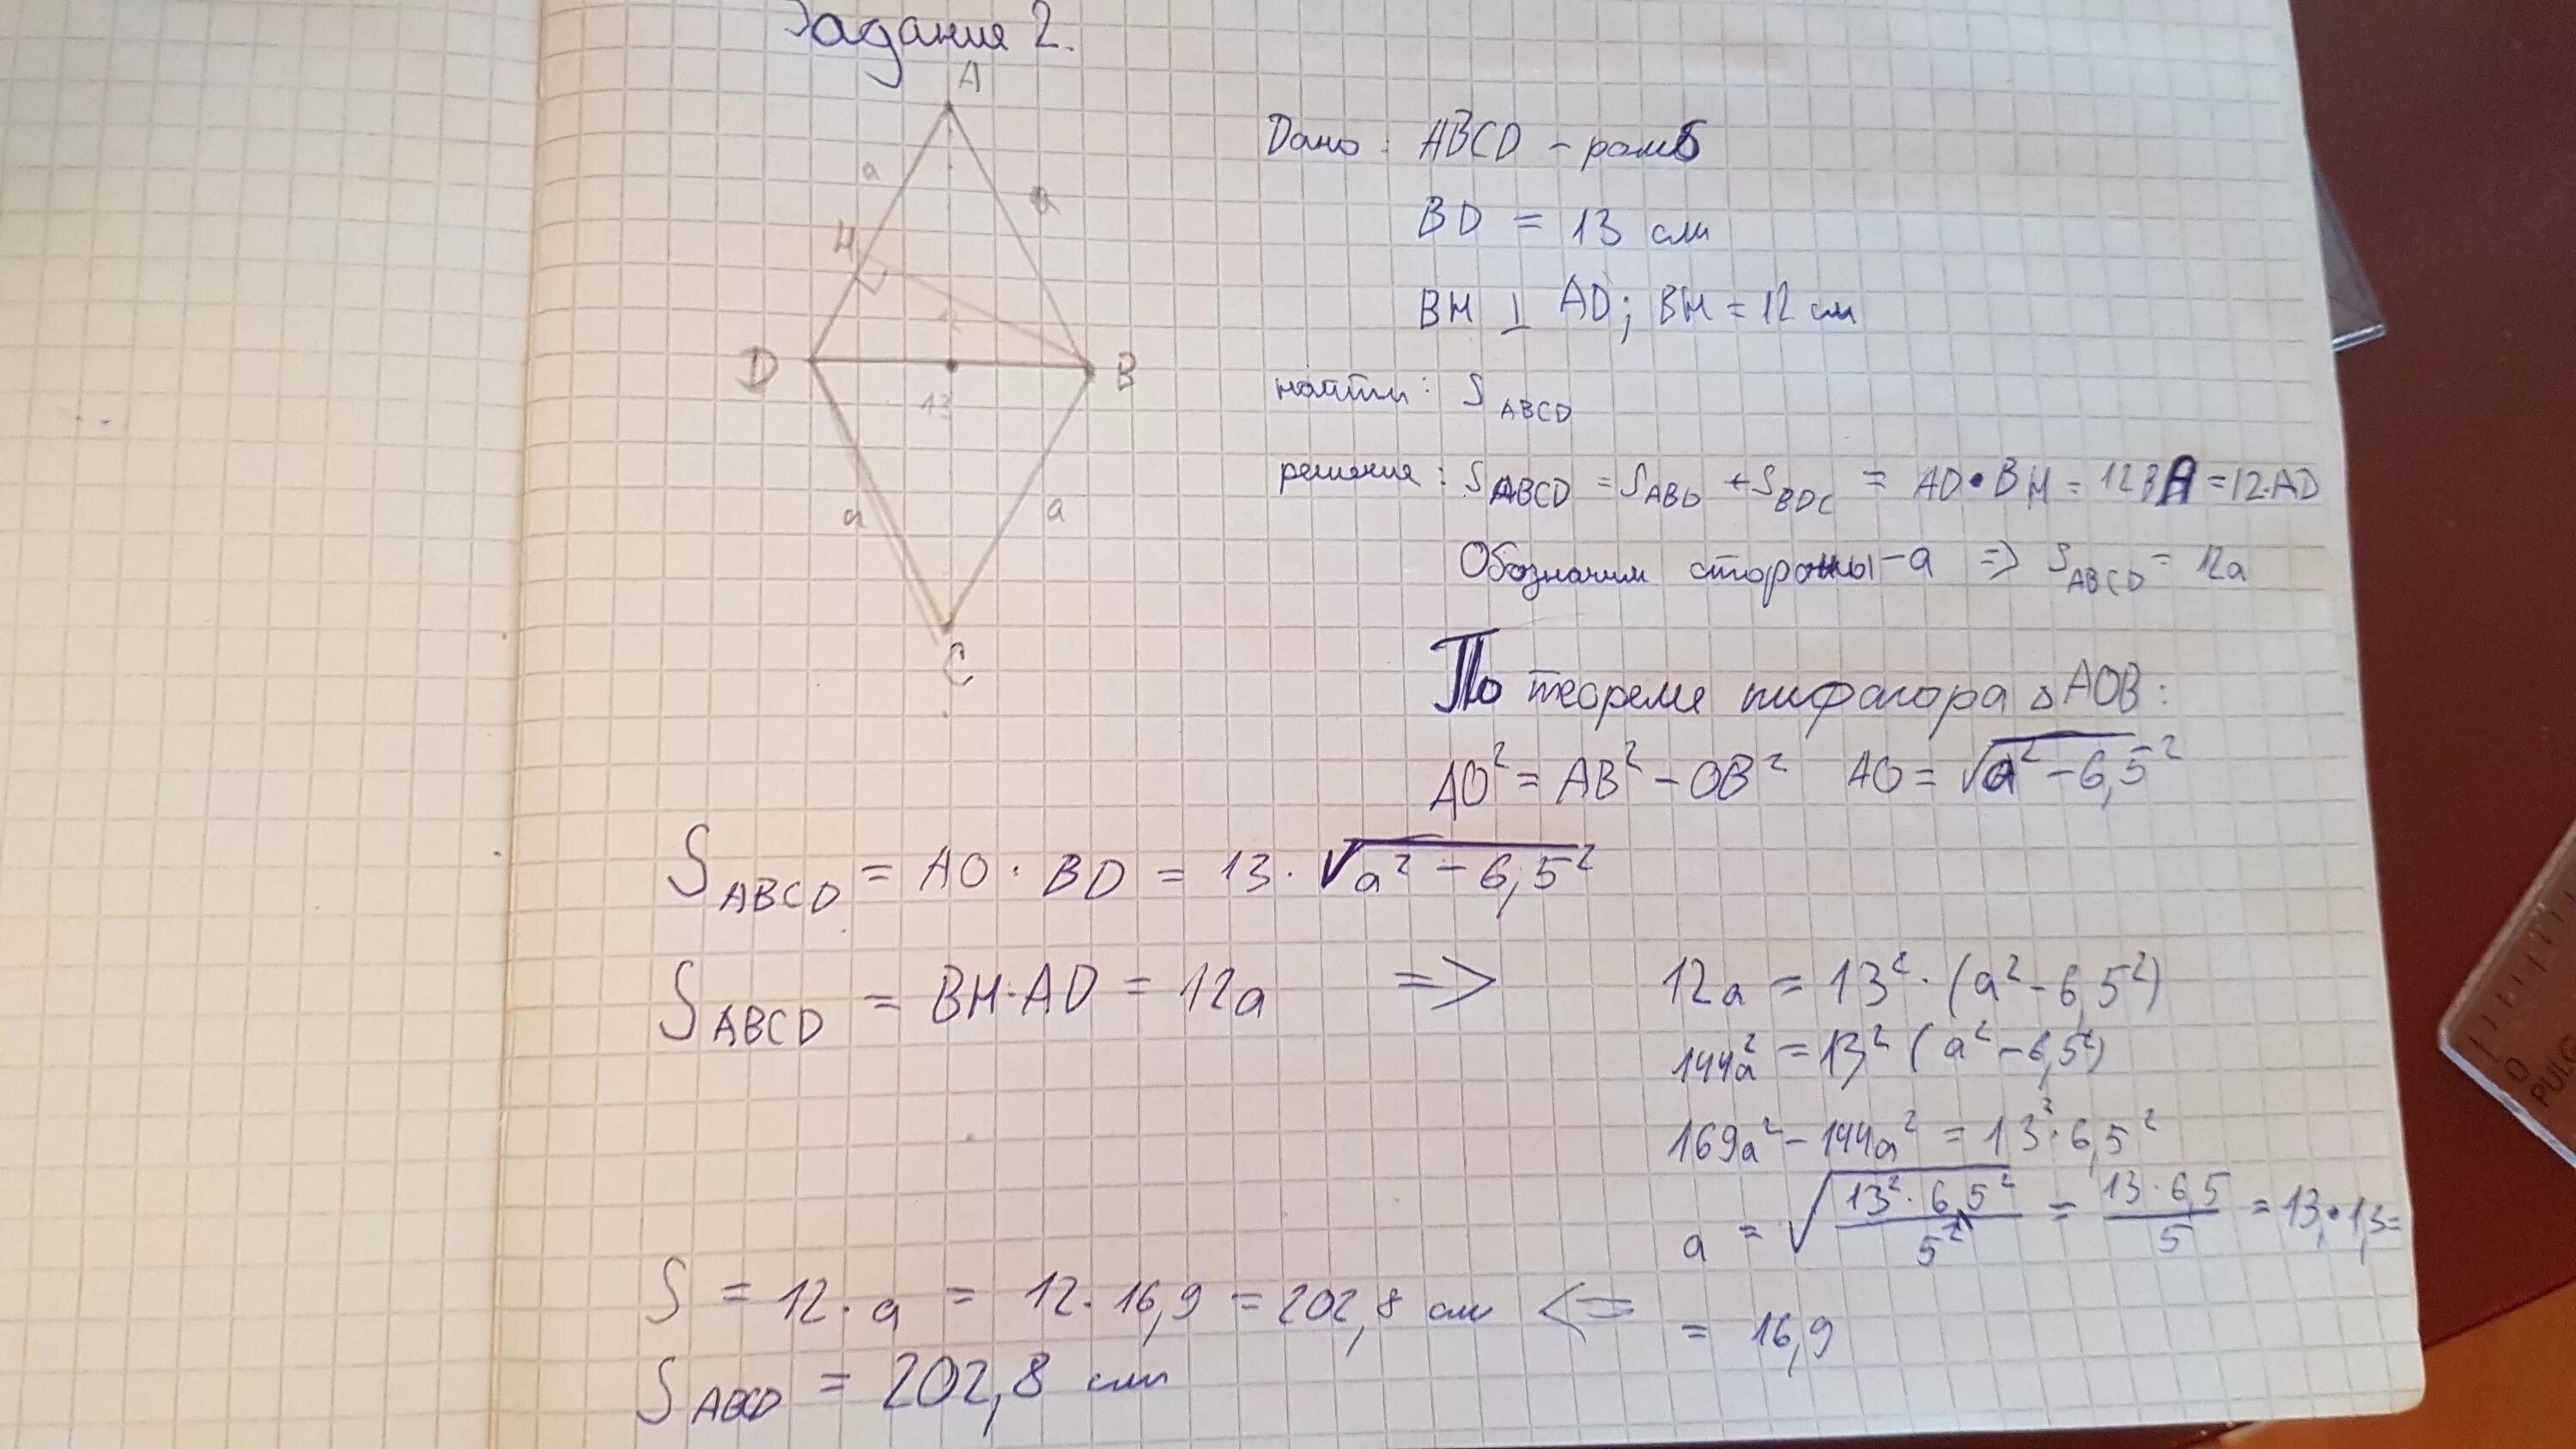 Задание 2.
A
a
a
H
12
D
B
13
a
a
C
Дано: ABCD - ромб
BD = 13 см
BH ⊥ AD; BH = 12 см
найти: S ABCD
решение: S ABCD = S ABD + S BDC = AD • BH = 12BH = 12·AD
Обозначим стороны - a => S ABCD = 12a
По теореме пифагора △AOB:
AO² = AB² - OB² AO = √a² - 6,5²
S ABCD = AO · BD = 13 · √a² - 6,5²
S ABCD = BH·AD = 12a => 12a = 13² · (a² - 6,5²)
144a² = 13² (a² - 6,5²)
169a² - 144a² = 13² · 6,5²
a = √13² · 6,5² / 5² = 13 · 6,5 / 5 = 13 • 1,3 =
S = 12 · a = 12 · 16,9 = 202,8 см <= = 16,9
S ABCD = 202,8 см
0